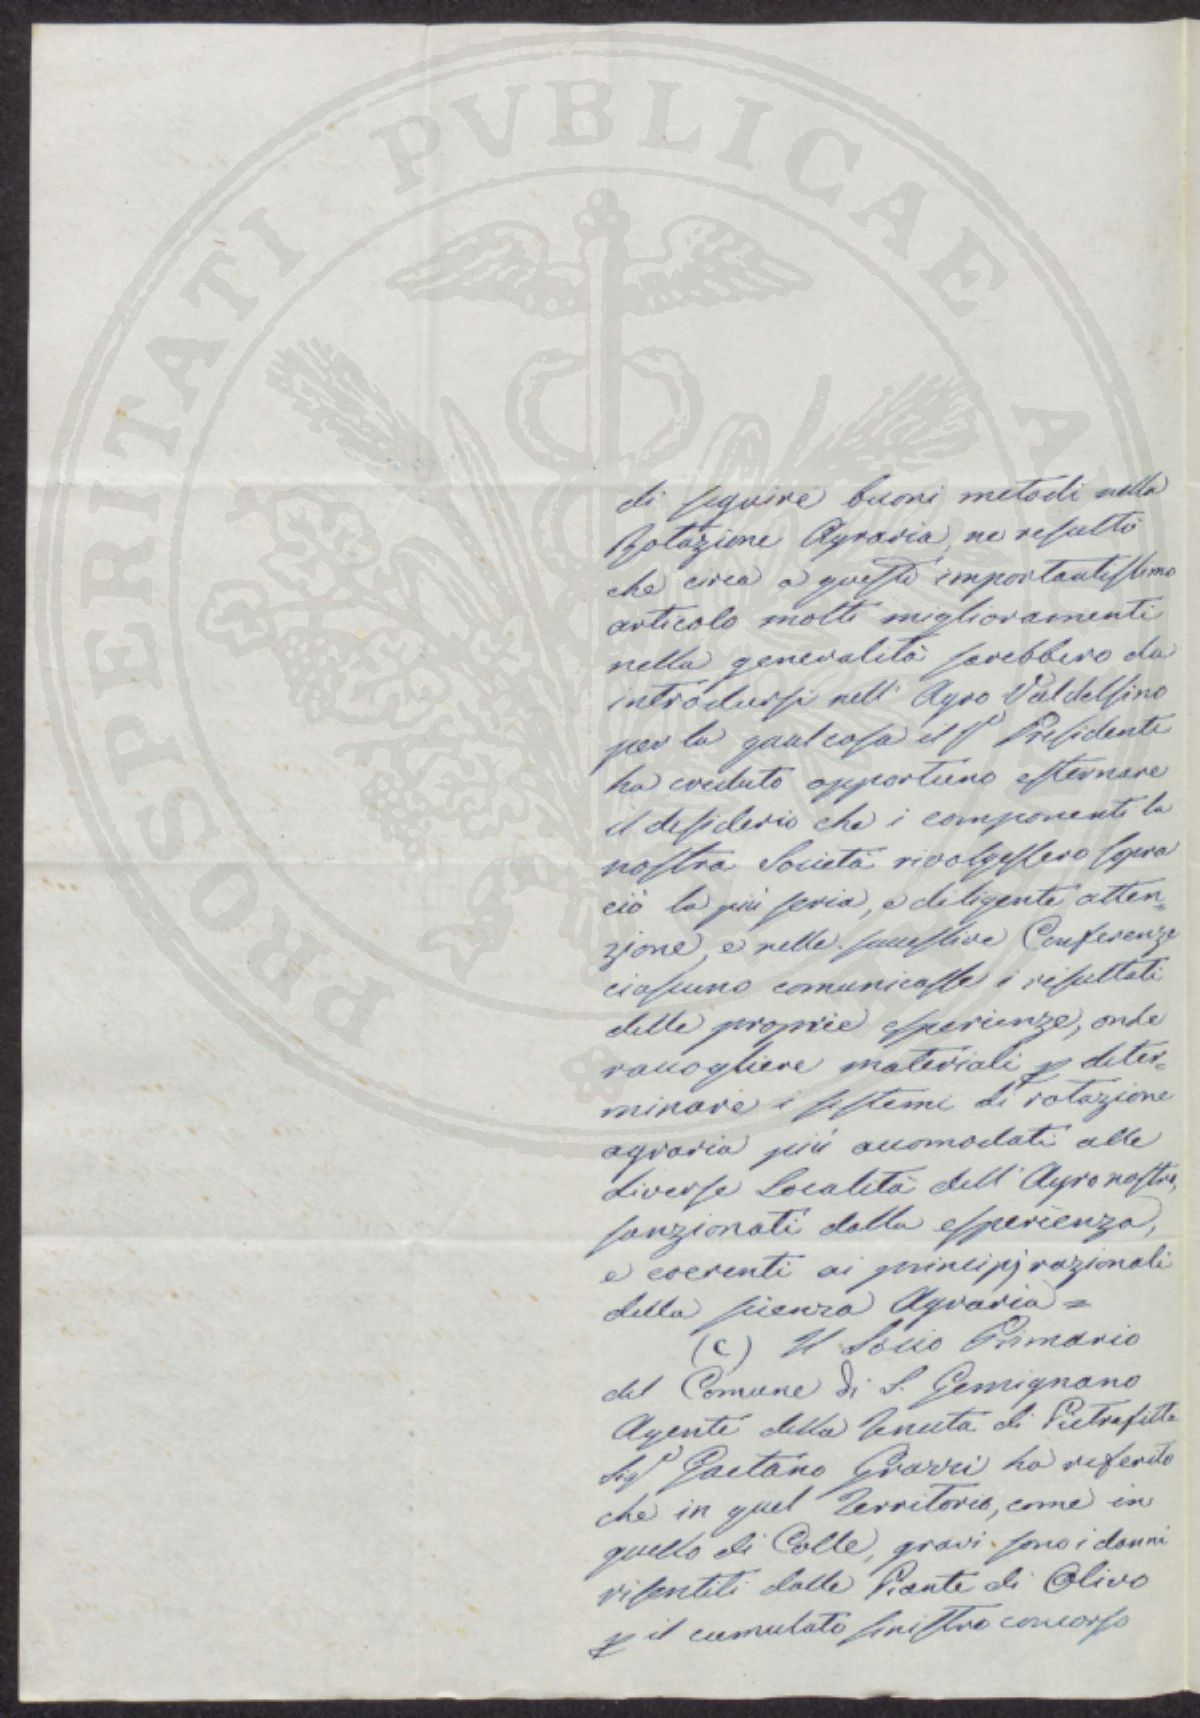 PROSPERITATI PVBLICAE AV
di seguire buoni metodi nella
Rotazione Agraria, ne resultò
che circa a questo importantissimo
articolo molti miglioramenti
nella generalità sarebbero da
introdursi nell' Agro Valdelsino
per la qual cosa il Sr Presidente
ha creduto opportuno esternare
il desiderio che i componenti la
nostra Società rivolgessero sopra
ciò la più seria, e diligente atten=
zione, e nelle successive Conferenze
ciascuno comunicasse i resultati
delle proprie esperienze, onde
raccogliere materiali p deter=
minare i sistemi di rotazione
agraria più accomodati alle
diverse Località dell' Agro nostro,
sanzionati dalla esperienza,
e coerenti ai principj razionali
della scienza Agraria =
(C) Il Socio Primario
del Comune di S. Gemignano
Agente della Tenuta di Pietrafitta
Sigr Gaetano ha referito
che in quel Territorio, come in
quello di Colle, gravi sono i danni
risentiti dalle Piante di Olivo
p il cumulato sinistro concorso